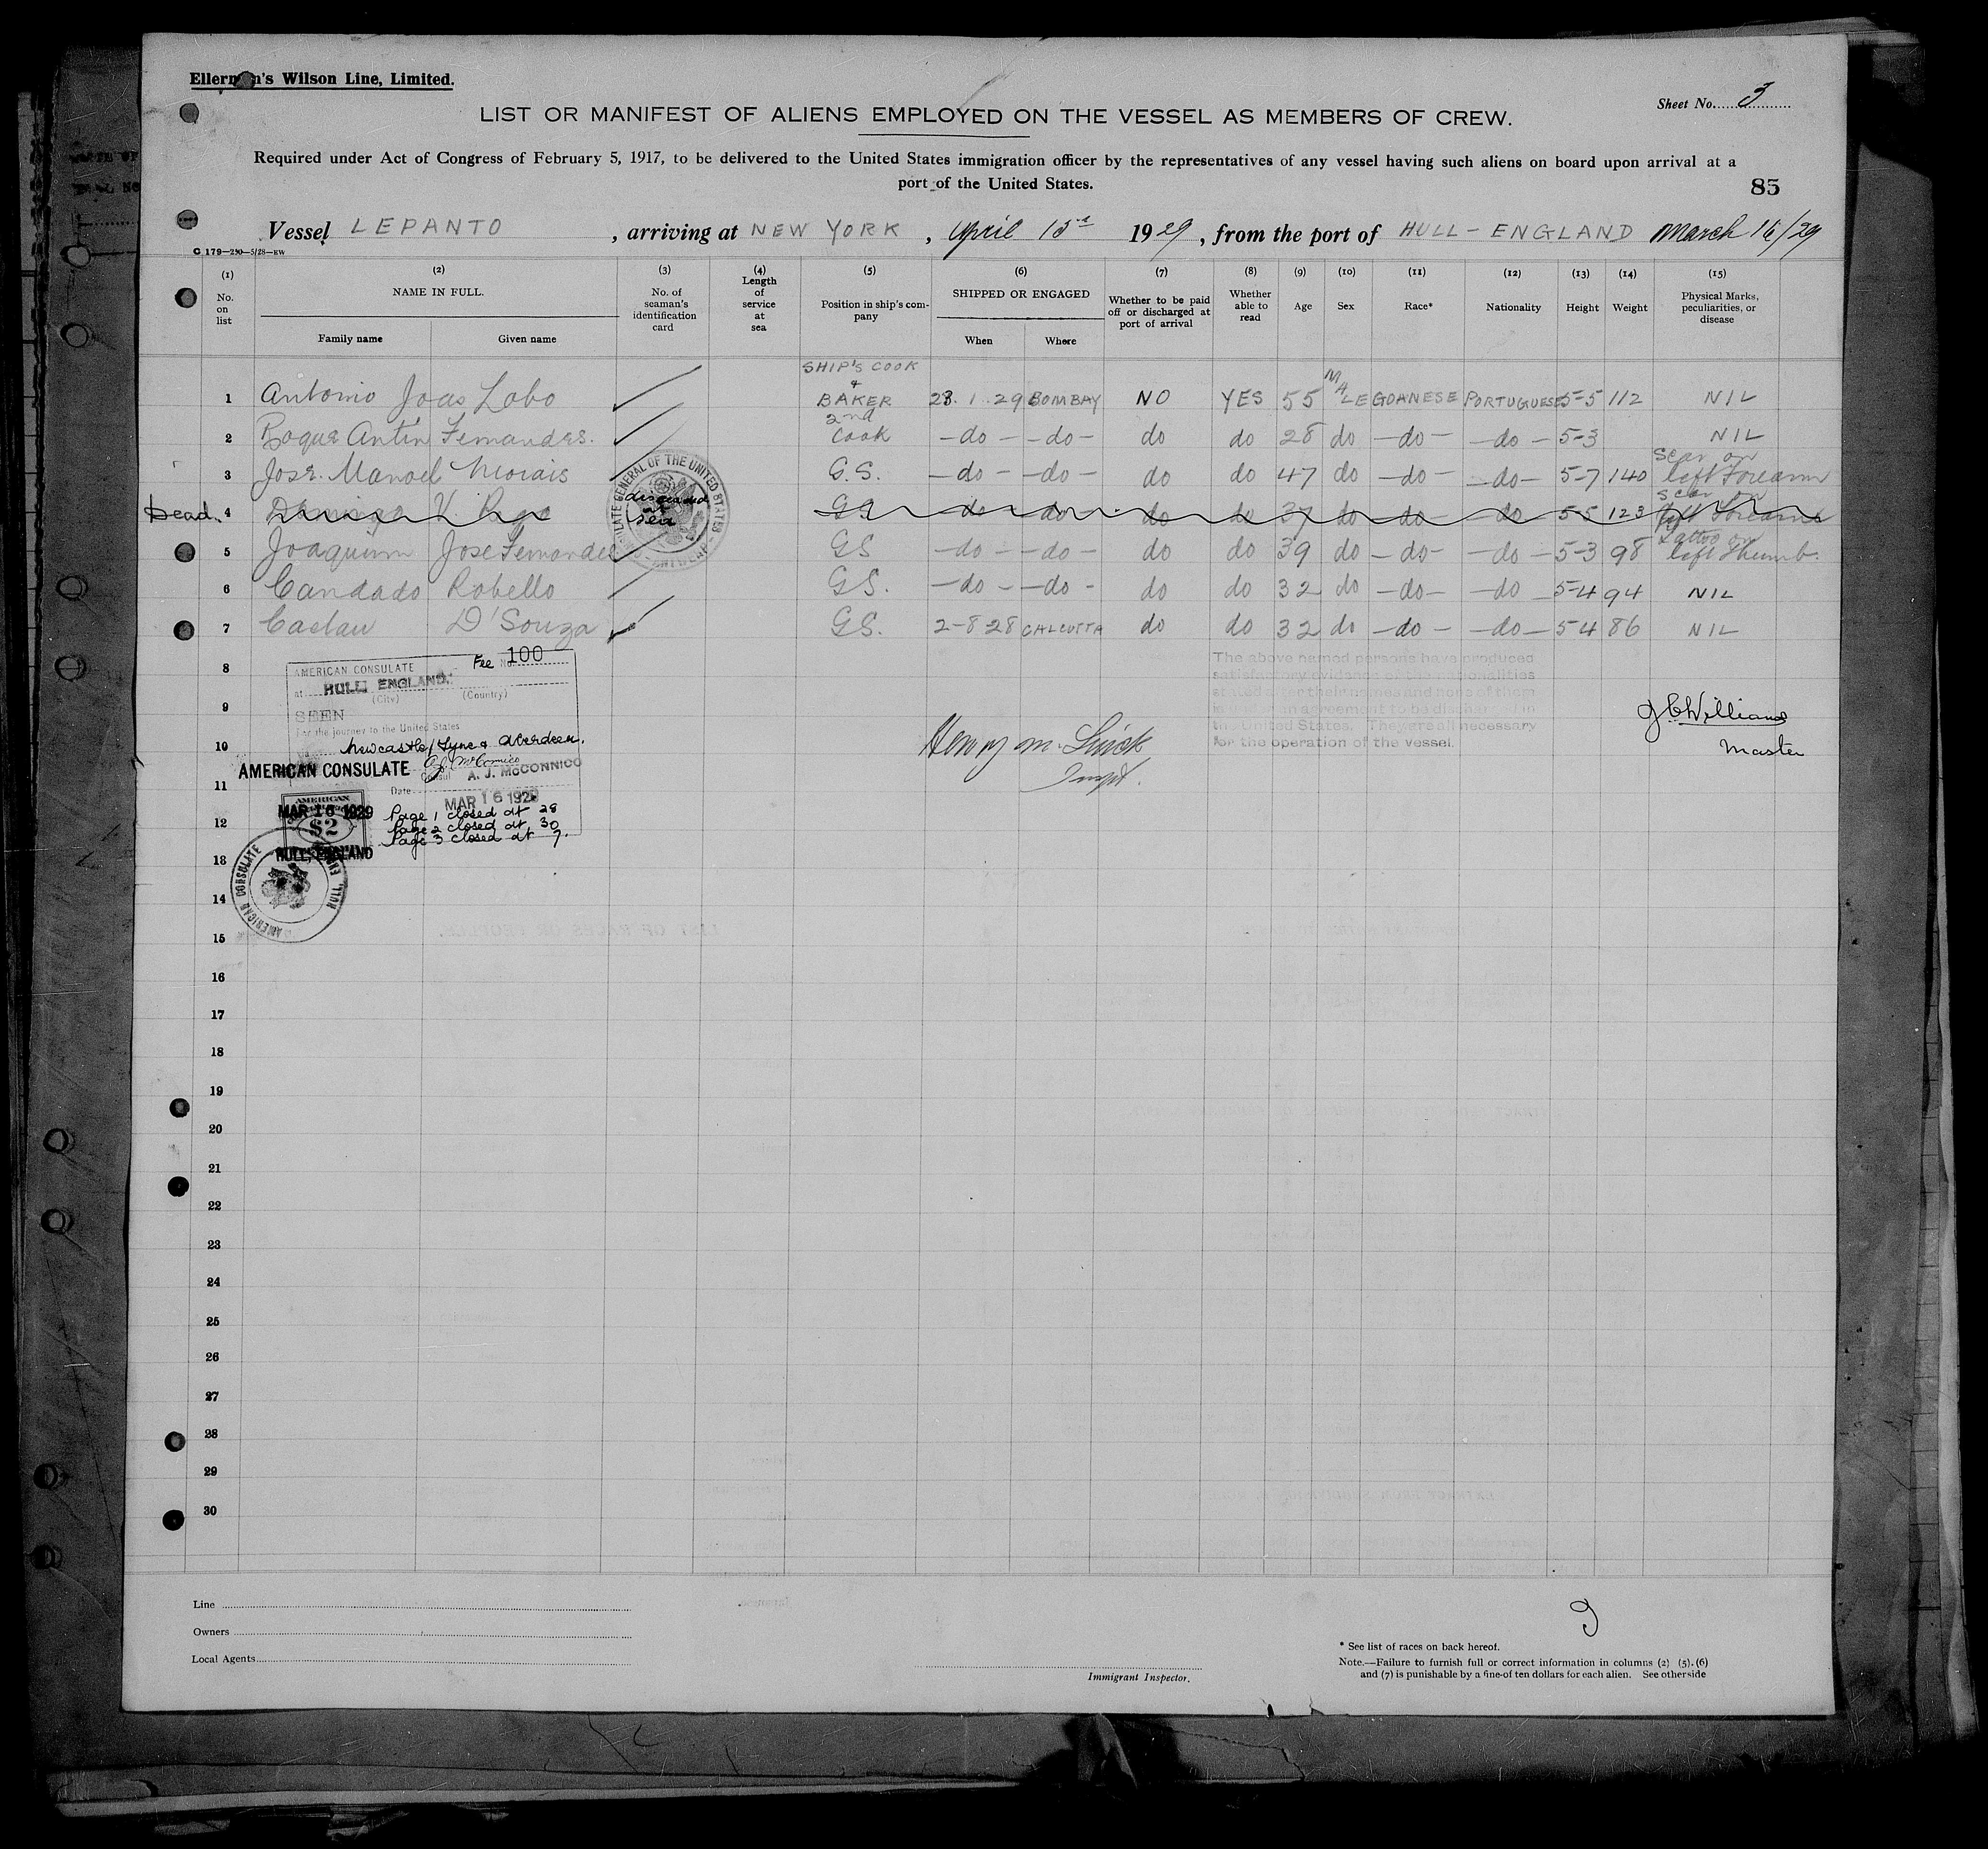 Ellerman's Wilson Line, Limited.
Sheet No. 3
LIST OR MANIFEST OF ALIENS EMPLOYED ON THE VESSEL AS MEMBERS OF CREW.
Required under Act of Congress of February 5, 1917, to be delivered to the United States immigration officer by the representatives of any vessel having such aliens on board upon arrival at a
port of the United States.
85
Vessel LEPANTO, arriving at NEW YORK, April 1929, from the port of HULL - ENGLAND March 16/29
C 179-250-5/28-EW
(1) (2) (3) (4) (5) (6) (7) (8) (9) (10) (11) (12) (13) (14) (15)
No. on list NAME IN FULL. Family name Given name No. of seaman's identification card Length of service at sea Position in ship's company SHIPPED OR ENGAGED When Where Whether to be paid off or discharged at port of arrival Whether able to read Age Sex Race* Nationality Height Weight Physical Marks, peculiarities, or disease
1 Antonio Joas Lobo SHIP'S COOK & BAKER 28.1.29 BOMBAY NO YES 55 MALE GOANESE PORTUGUESE 5-5 112 NIL
2 Roque Antin Fernandes. 2nd Cook -do- -do- do do 28 do -do- -do- 5-3 NIL
3 Jose. Manoel Morais G.S. -do- -do- do do 47 do -do- -do- 5-7 140 Scar on left Forearm
Dead. 4 GS -do- -do- do do 37 do -do- -do- 5-5 123 scar on left Forearm
deceased at sea
CONSULATE GENERAL OF THE UNITED STATES - ANTWERP -
5 Joaquim Jose Fernandes GS -do- -do- do do 39 do -do- -do- 5-3 98 Tattoo on left Thumb.
6 Candado Robello GS. -do- -do- do do 32 do -do- -do- 5-4 94 NIL
7 Caetau D'Souza GS. 2-8 28 CALCUTTA do do 32 do -do- -do- 5 4 86 NIL
8
9
10
11
12
13
14
15
16
17
18
19
20
21
22
23
24
25
26
27
28
29
30
AMERICAN CONSULATE Fee No. 100
at HULL ENGLAND.
(City) (Country)
SEEN
For the journey to the United States
via Newcastle/Tyne & Aberdeen.
AMERICAN CONSULATE
Consul A. J. McCONNICO
Date MAR 16 1929
AMERICAN
MAR 16 1929
$2
HULL, ENGLAND
Page 1 closed at 28
Page 2 closed at 30
Page 3 closed at 7.
AMERICAN CONSULATE HULL, ENG
The above named persons have produced
satisfactory evidence of the nationalities
stated after their names and none of them
is under an agreement to be discharged in
the United States. They are all necessary
for the operation of the vessel.
J C Williams
Master
Henry M.
Inspt.
Line
Owners
Local Agents
Immigrant Inspector.
9
* See list of races on back hereof.
Note.—Failure to furnish full or correct information in columns (2) (5). (6)
and (7) is punishable by a fine of ten dollars for each alien. See otherside